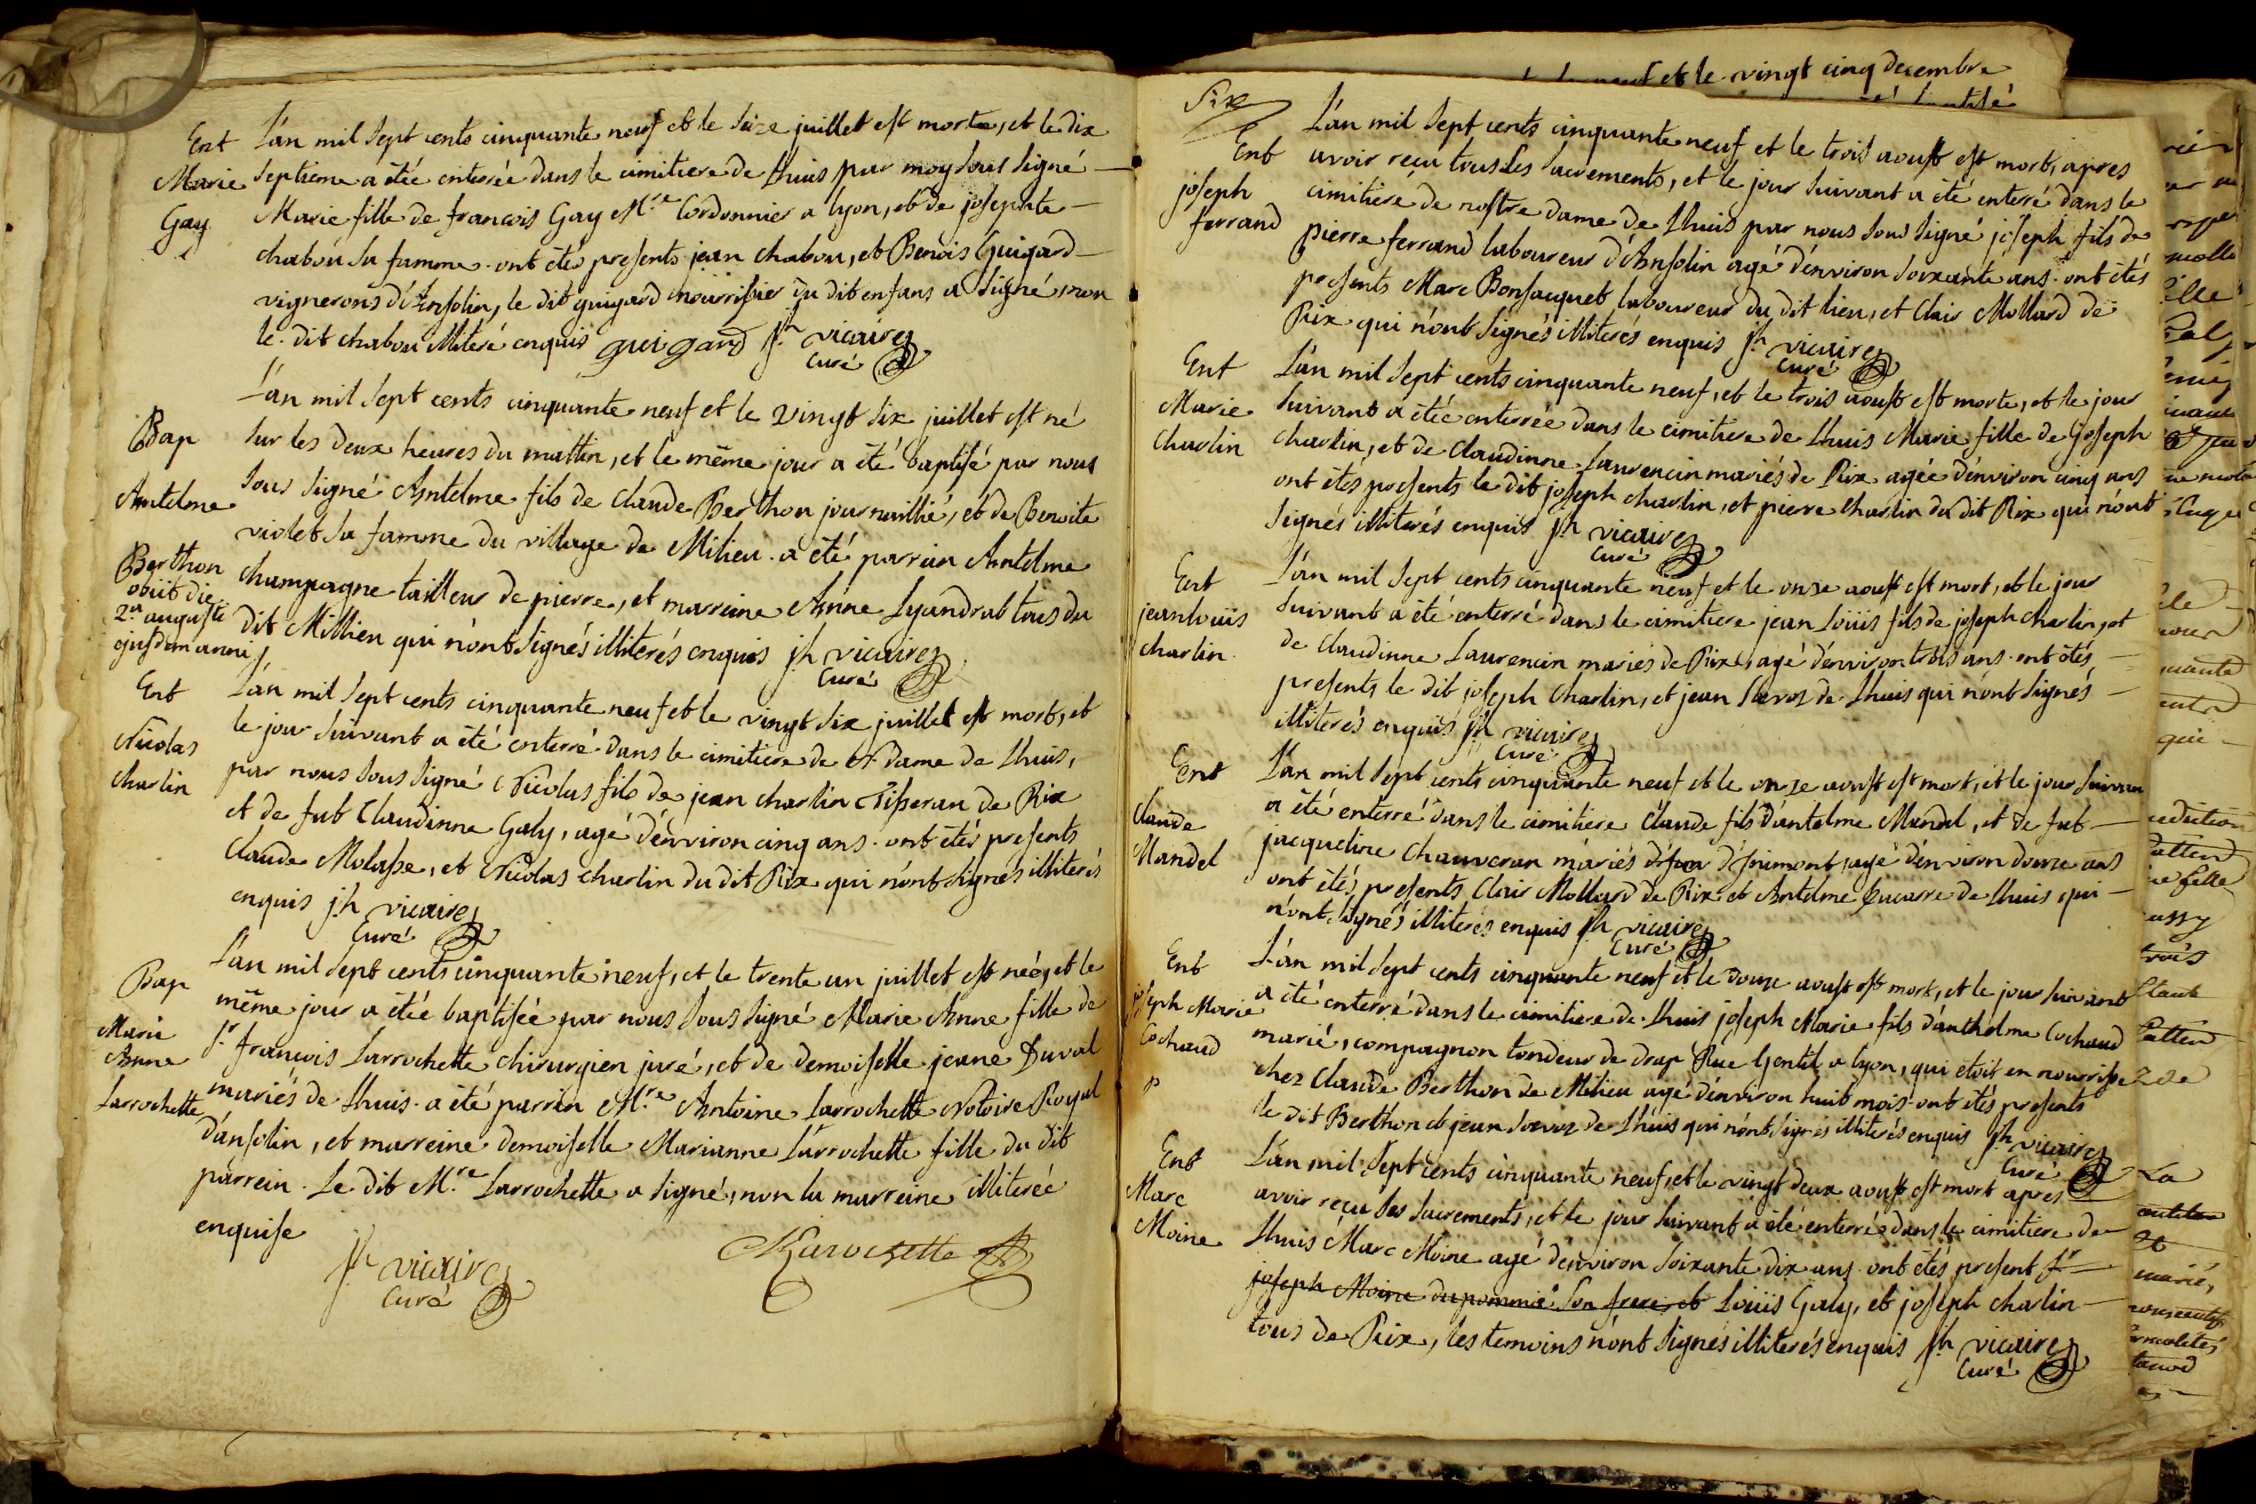 Ent
Marie
Gay
L'an mil sept cents cinquante neuf et le seize juillet est morte, et le dix
septieme a étée enterrée dans le cimitiere de Lhuis par moy sous signé
Marie fille de francois Gay M.re Cordonnier a lyon, et de josephte
chabou sa famme. ont étés presents jean chabou, et Benois Guigard
vignerons d'Ansolin, le dit guigard nourrissier du dit enfans a signé, non
le dit chabou illiteré enquis guigard jh vicaire
Curé
Bap
Antelme
Berthon
obiit die
2.a auguste
ejusdem anni
L'an mil sept cents cinquante neuf et le vingt six juillet est né
sur les deux heures du mattin, et le même jour a été baptisé par nous
sous signé Antelme fils de Claude Berthon journaillié, et de Benoite
violet sa famme du village de Milieu. a été parrain Antelme
champagne tailleur de pierre, et marreine Anne Lyandrat tous du
dit Millieu qui n'ont signés illiterés enquis jh vicaire
Curé
Ent
Nicolas
charlin
L'an mil sept cents cinquante neuf et le vingt six juillet est mort, et
le jour suivant a été enterré dans le cimitiere de N. Dame de Lhuis,
par nous sous signé Nicolas fils de jean charlin Tisseran de Rix
et de fut Claudinne Galy, agé d'environ cinq ans. ont étés presents
Claude Molasse, et Nicolas charlin du dit Rix qui n'ont signés illiterés
enquis jh vicaire
Curé
Bap
Marie
Anne
Larrochette
L'an mil sept cents cinquante neuf, et le trente un juillet est née, et le
même jour a étée baptisée par nous sous signé Marie Anne fille de
s.r francois Larrochette chirurgien juré, et de demoiselle jeane Duval
mariés de Lhuis. a été parrin M.re Antoine Larrochette Notoire Royal
d'ansolin, et marreine demoiselle Marianne Larrochette fille du dit
parrein. Le dit M.re Larrochette a signé, non la marreine illiterée
enquise
jh vicaire
Curé
Larochette
et le vingt cinq decembre
Six
Ent
joseph
ferrand
L'an mil sept cents cinquante neuf et le trois aoust est mort, apres
avoir reçu tous les sacrements, et le jour suivant a été enterré dans le
cimitiere de nostre dame de Lhuis par nous sous signé joseph fils de
pierre ferrand laboureur d'Ansolin agé d'environ soixante ans. ont étés
presents Marc Bonsacquet laboureur du dit lieu, et Clair Mollard de
Rix qui n'ont signés illiterés enquis jh vicaire
Curé
Ent
Marie
charlin
L'an mil sept cents cinquante neuf, et le trois aoust est morte, et le jour
suivant a étée enterrée dans le cimitiere de Lhuis Marie fille de joseph
charlin, et de Claudinne Laurencin mariés de Rix agée d'environ cinq ans
ont étés presents le dit joseph charlin, et pierre charlin du dit Rix qui n'ont
signés illiterés enquis jh vicaire
Curé
Ent
jean louiis
charlin
L'an mil sept cents cinquante neuf et le onze aoust est mort, et le jour
suivant a été enterré dans le cimitiere jean Louiis fils de joseph charlin, et
de Claudinne Laurencin mariés de Rix, agé d'environ trois ans. ont étés
presents le dit joseph charlin, et jean de Lhuis qui n'ont signés
illiterés enquis jh vicaire
Curé
Ent
Claude
Mandel
L'an mil sept cents cinquante neuf et le onze aoust est mort, et le jour suivan
a été enterré dans le cimitiere Claude fils d'antelme Mandel, et de fut
jacqueline chauveran mariés agé d'environ douze ans
ont étés presents Clair Mollard de Rix et Antelme de Lhuis, qui
n'ont signés illiterés enquis jh vicaire
Curé
Ent
joseph Marie
Cochaud
L'an mil sept cents cinquante neuf et le douze aoust est mort, et le jour suivant
a été enterré dans le cimitiere de Lhuis joseph Marie fils d'anthelme Cochaud
marié, compagnon tondeur de drap Rue Gentil a lyon, qui étoit en nourrisse
chez Claude Berthon de Milieu agé d'environ huit mois. ont étés presents
le dit Berthon et jean de Lhuis qui n'ont signés illiterés enquis jh vicaire
Curé
Ent
Marc
Moine
L'an mil sept cents cinquante neuf, et le vingt deux aoust est mort apres
avoir reçu les sacrements, et le jour suivant a été enterré dans le cimitiere de
Lhuis Marc Moine agé d'environ soixante dix ans. ont étés present
joseph Moine son frere, et Louiis Galy, et joseph charlin
tous de Rix, les temoins n'ont signés illiterés enquis jh vicaire
Curé